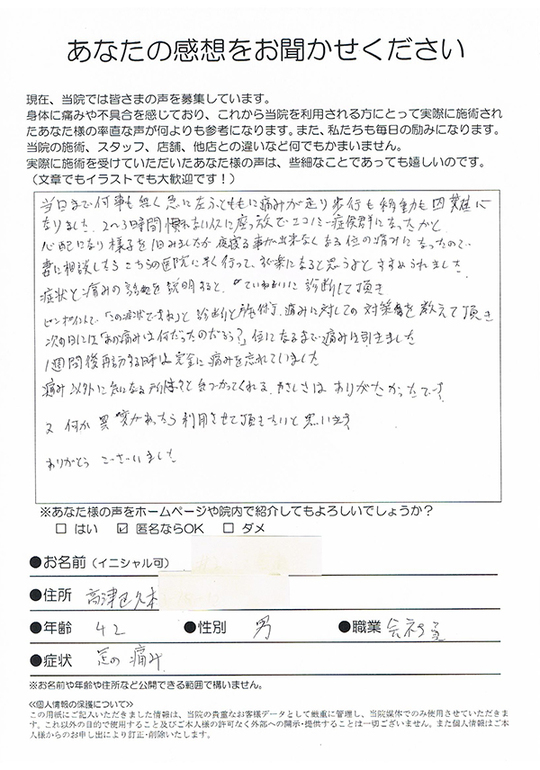 あなたの感想をお聞かせください
現在、当院では皆さまの声を募集しています。
身体に痛みや不具合を感じており、これから当院を利用される方にとって実際に施術され
たあなた様の率直な声が何よりも参考になります。また、私たちも毎日の励みになります。
当院の施術、スタッフ、店舗、他店との違いなど何でもかまいません。
実際に施術を受けていただいたあなた様の声は、些細なことであっても嬉しいのです。
(文章でもイラストでも大歓迎です!)
当日まで何事も無く急に左ふとももに痛みが走り歩行も 困難に
なりました。2〜3時間慣れないイスに座って エコノミー症候群になったかと
心配になり様子を 夜寝る事が出来なくなる位の痛みになったので
妻に相談したら こちらの医院に早く行って、楽になると思うよとすすめられました。
症状と痛みの を説明すると、ていねいに診断して頂き
ピンポイントで、「この症状ですね」と診断と施術、痛みに対しての対策を教えて頂き
次の日には「あの痛みは何だったのだろう?」位になるまで痛みは引きました
1週間後再訪する時は完全に痛みを忘れていました
痛み以外に気になる所 見つかってくれる、やさしさは ありがたかったです。
又 何か異変があったら利用させて頂きたいと思います
ありがとうございました
※あなた様の声をホームページや院内で紹介してもよろしいでしょうか?
□ はい ☑ 匿名ならOK □ ダメ
●お名前(イニシャル可)
●住所 高津区久本
●年齢 42 ●性別 男 ●職業 会社員
●症状 足の痛み
※お名前や年齢や住所など公開できる範囲で構いません。
≪個人情報の保護について≫
この用紙にご記入いただきました情報は、当院の貴重なお客様データとして厳重に管理し、当院媒体でのみ使用させていただきま
す。これ以外の目的で使用すること及びご本人様の許可なく外部への開示・提供することは一切ございません。また個人情報はご本
人様からのお申し出により訂正・削除いたします。